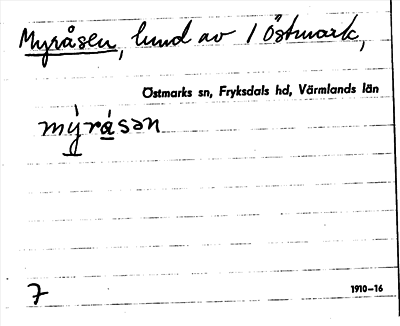 Myråsen, lund av 1 Östmark,
Östmarks sn, Fryksdals hd, Värmlands län
mỳrásən
7
1910–16